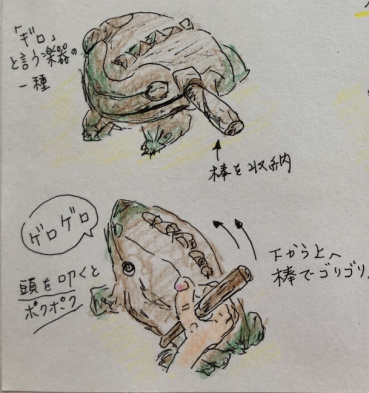 「ギロ」
と言う楽器の
一種
棒を収納
ゲロゲロ
頭を叩くと
ポクポク
下から上へ
棒でゴリゴリ